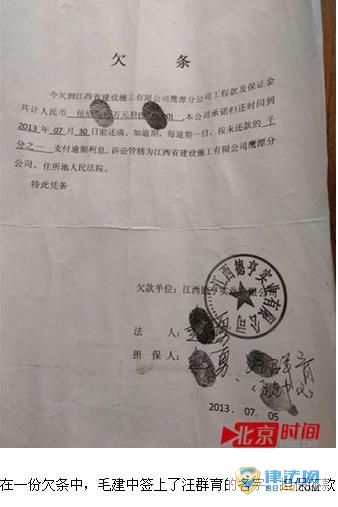 欠 条
今欠到江西省建设施工有限公司鹰潭分公司工程款及保证金
共计人民币 万元整 本公司承诺归还时间到
2013 年 07 月 30 日前还清、如逾期,每逾期一日、按未还款的 千
分之一 支付逾期利息。诉讼管辖为江西省建设施工有限公司鹰潭分
公司、住所地人民法院。
特此凭条
欠款单位:江西德亨实业有限公司
江西德亨实业有限公司
法 人: 勇
担 保 人: 勇
2013. 07. 05
北京时间
在一份欠条中,毛建中签上了汪群育的名字
律法网